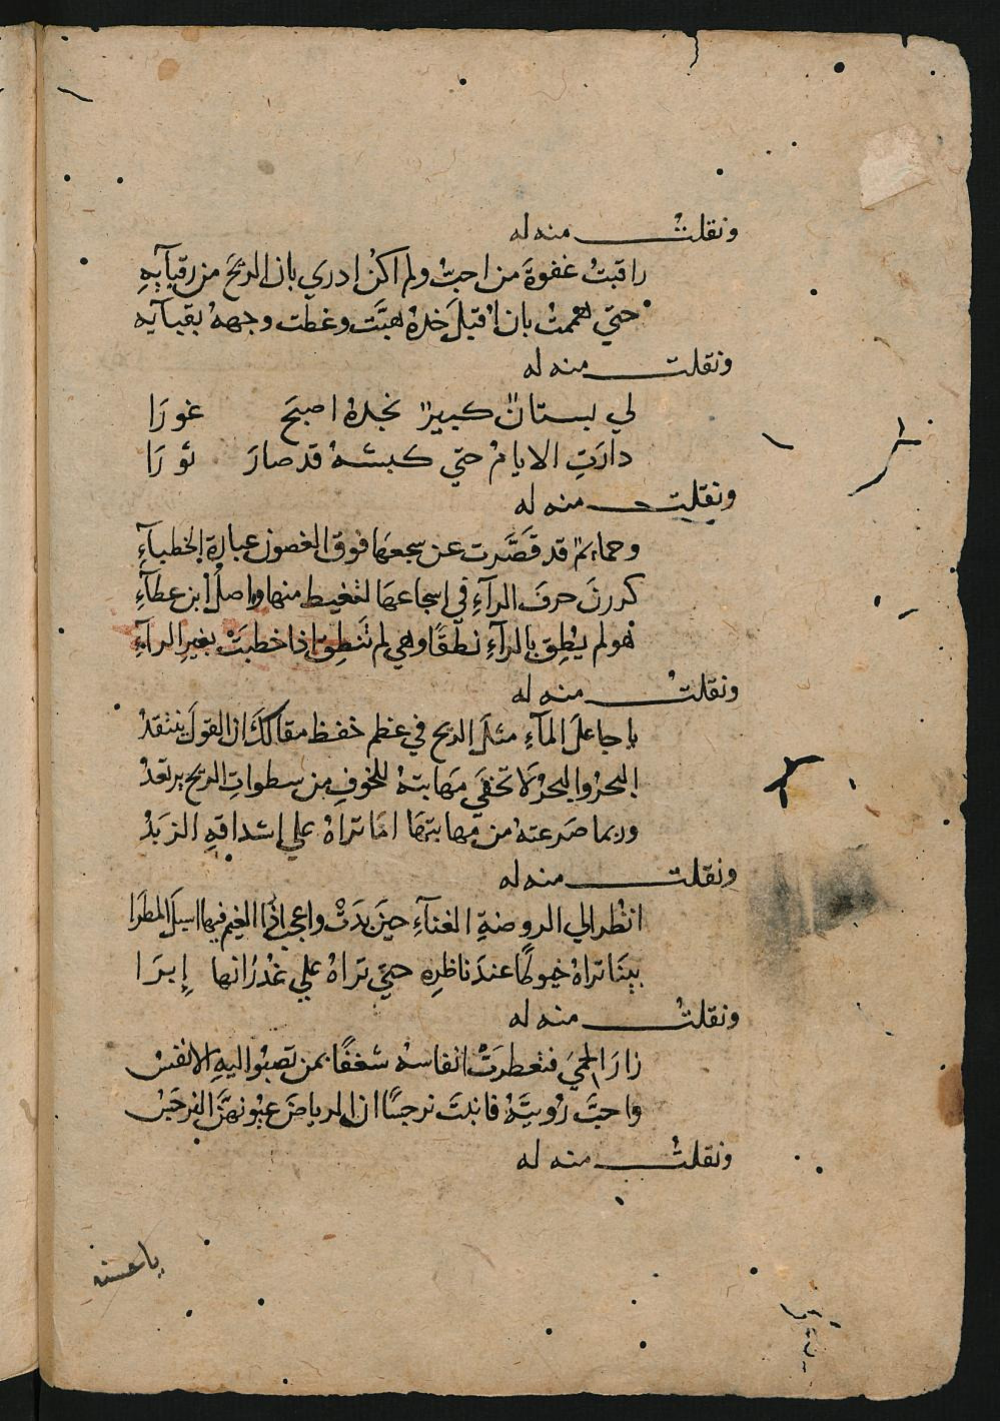 ونقلتُ منه له
راقبتُ غفوةَ من احبُّ ولم اكنْ ادري بان الريحَ من رقبآيهِ
حتي هممتُ بان اقبلَ خدهُ هبَّت وغطت وجههُ بقبآيه
ونقلت منه له
لي بستانٌ كبيرٌ نجدهُ اصبحَ غورَا
دارَتِ الايامُ حتي كبشهُ قد صارَ ثورَا
ونقلت منه له
وحمايمٌ قد قَصَّرت عن سجعهَا فوق الغصون عبارة الخطبآءِ
كررنَ حرفَ الرآءِ في اسجاعهَا لتغيط منها واصلُ ابن عطآءِ
هو لم يُطِق بالرآءِ نطقًا وهي لم تَنطِق اذا خطبَتْ بغير الرآءِ
ونقلتُ منه له
يا جاعلَ المآءِ مثلَ الريح في عظم خفظ مقالكَ ان القولَ ينتقدُ
البحرُ والبحرُ لَا تخفَي مَهابتهُ للخوفِ من سطواتِ الريح يرتعدُ
وربما صَرعتهُ من مهابتهَا امَا تراهُ علي اشداقهِ الزبَدُ
ونقلت منه له
انظر الي الروضةِ الغنآءِ حينَ بدَتْ واعجب اذا الغيم فيها اسبلَ المطرَا
بينَا تراهُ خيوطًا عندَ ناظرِه حتي تراهُ علي غدْرانها إبرَا
ونقلتُ منه له
زارَ الحميَ فتعطرَتْ انفاسهُ شغفًا بمن تصبُوا اليهِ الانفسُ
واحبَّ رُويتَهُ فانبتَ نرجسًا ان الرياضَ عيُونهنَّ النرجسُ
ونقلتُ منه له